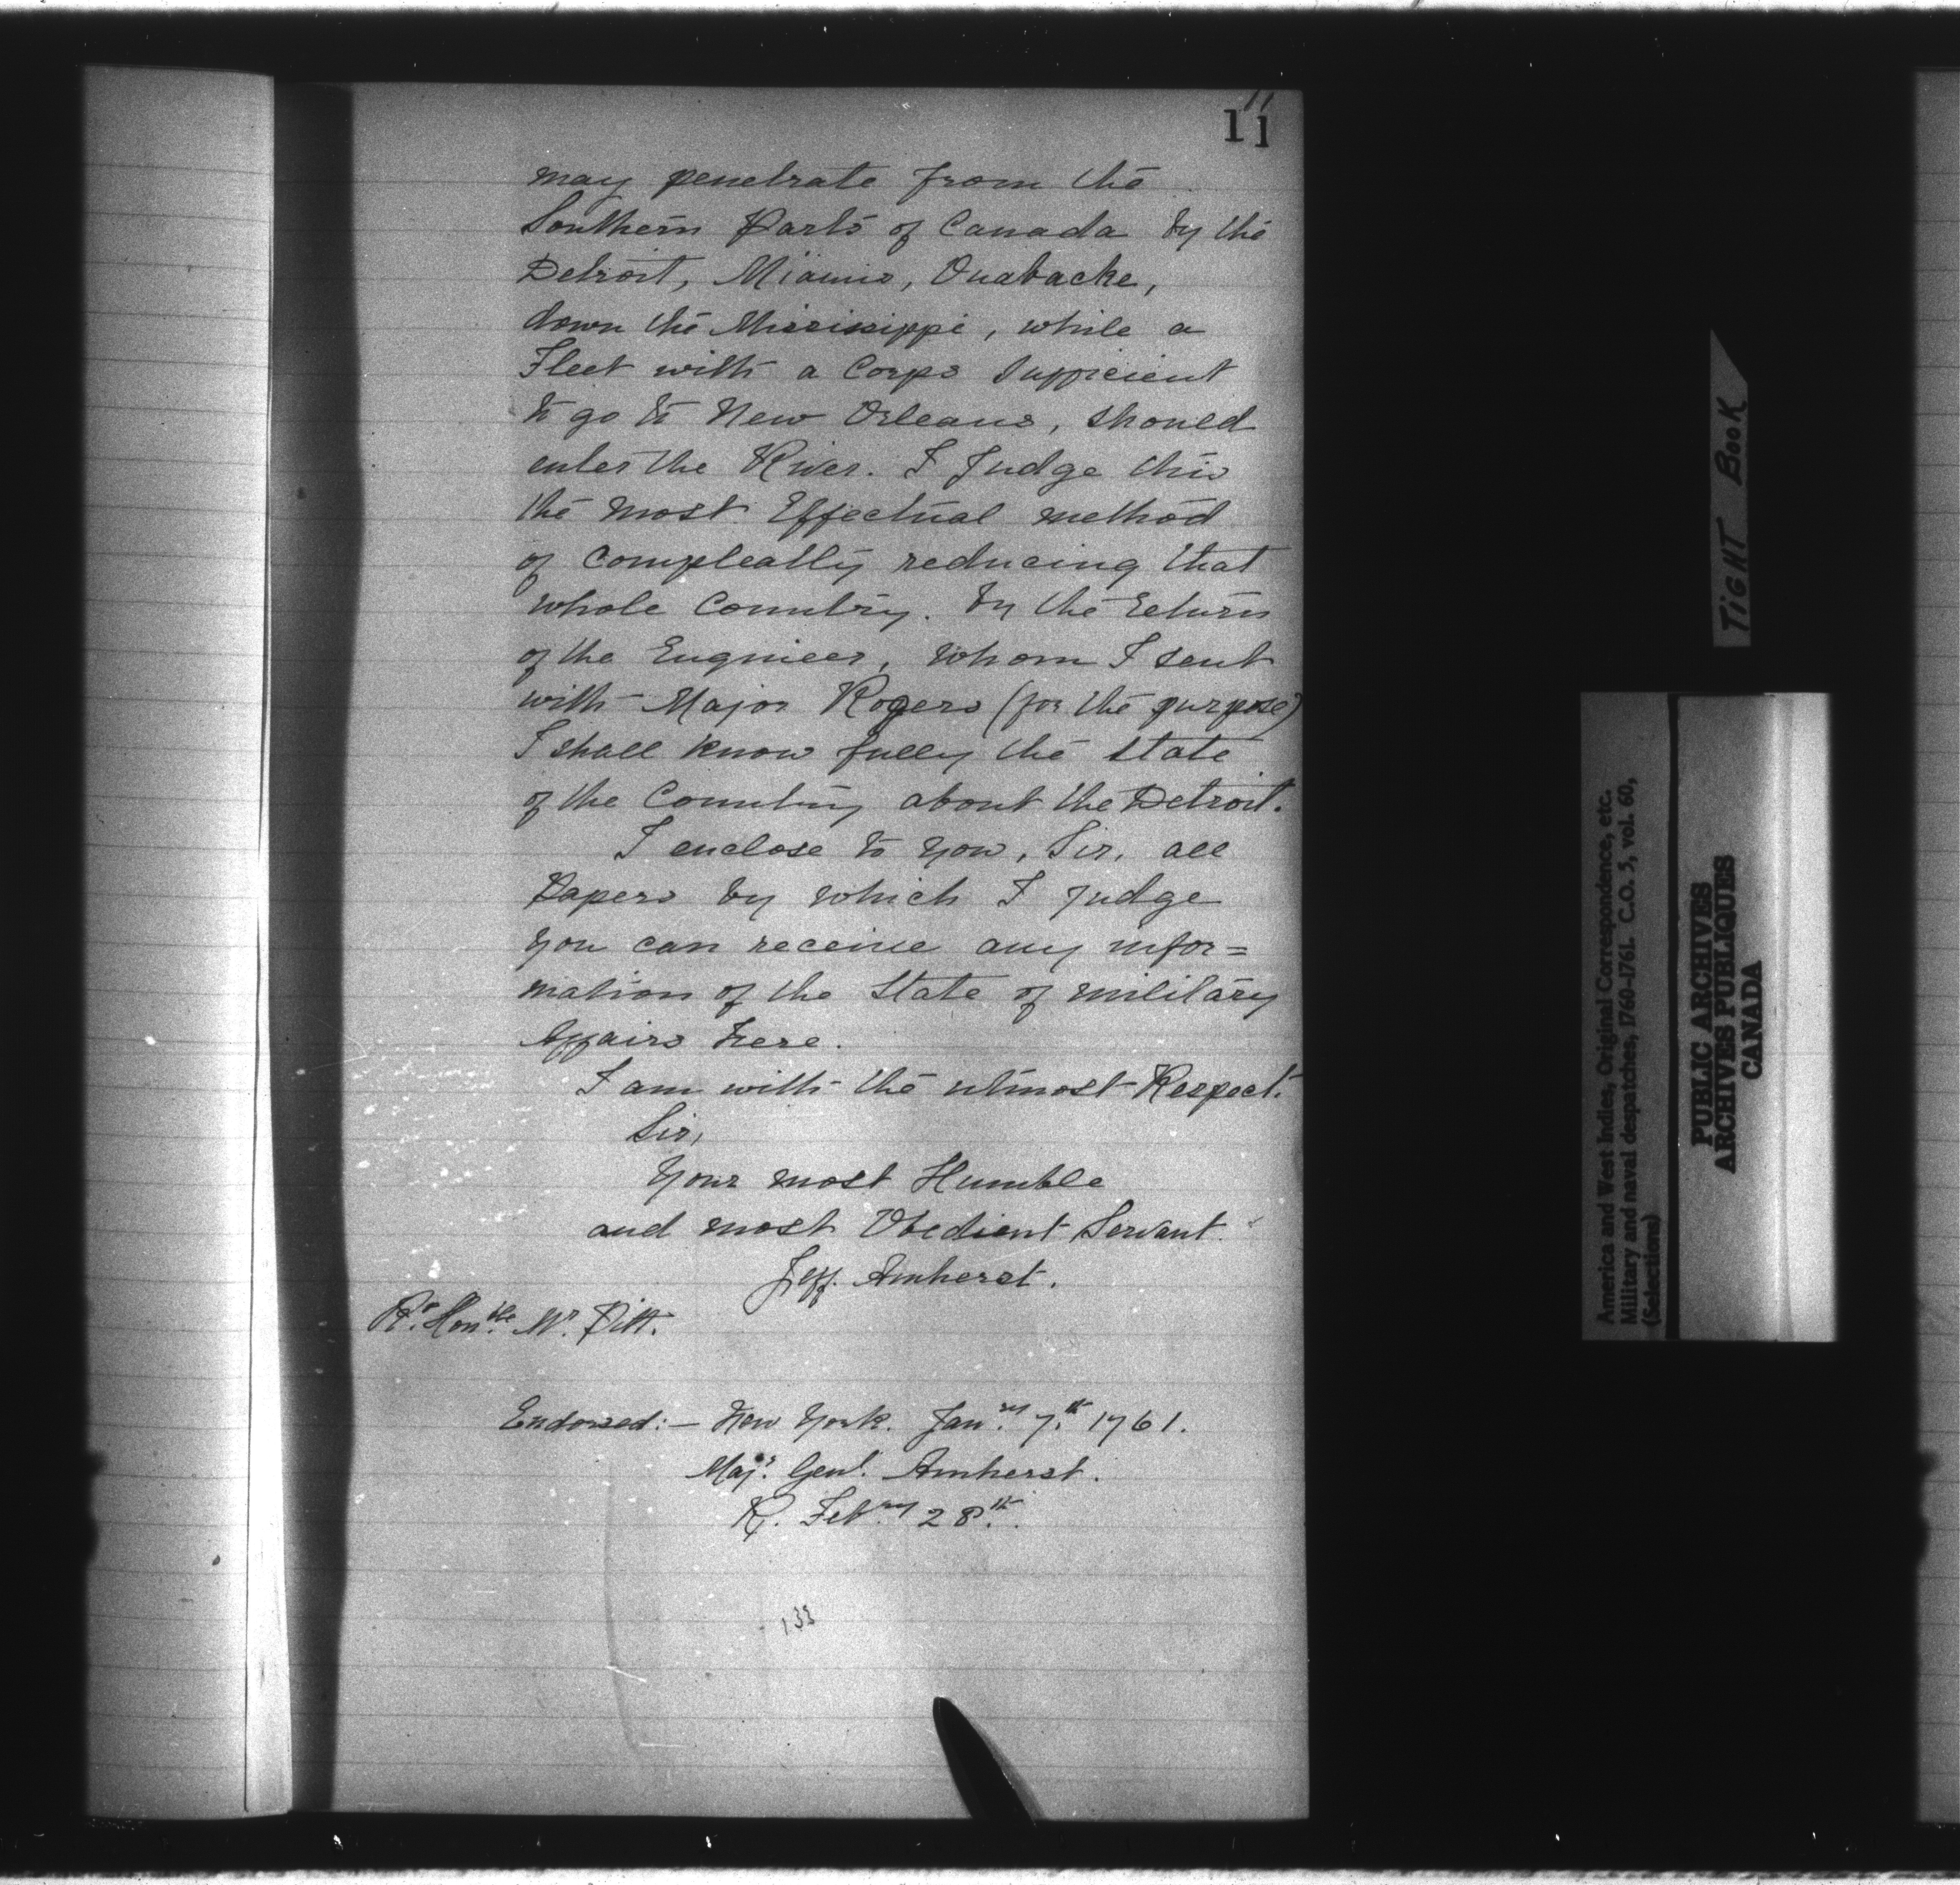 11
11
may penetrate from the
Southern Parts of Canada by the
Detroit, Miamis, Ouabacke,
down the Mississippi, while a
Fleet with a Corps Sufficient
to go to New Orleans, should
enter the River. I Judge this
the most Effectual method
of compleatly reducing that
whole Country. By the return
of the Engineer, whom I sent
with Major Rogers (for the purpose)
I shall know fully the state
of the Country about the Detroit.
I enclose to you, Sir, all
Papers by which I judge
you can receive any infor=
mation of the State of military
Affairs here.
I am with the utmost Respect.
Sir,
Your most Humble
and most Obedient Servant.
Jeff. Amherst.
Rt. Honble. Mr. Pitt.
Endorsed:— New York. Janry. 7th. 1761.
Majr. Genl. Amherst.
R. Febry. 28th.
133
TIGHT BOOK
America and West Indies, Original Correspondence, etc.
Military and naval despatches, 1760-1761. C.O. 5, vol. 60,
(Selections)
PUBLIC ARCHIVES
ARCHIVES PUBLIQUES
CANADA